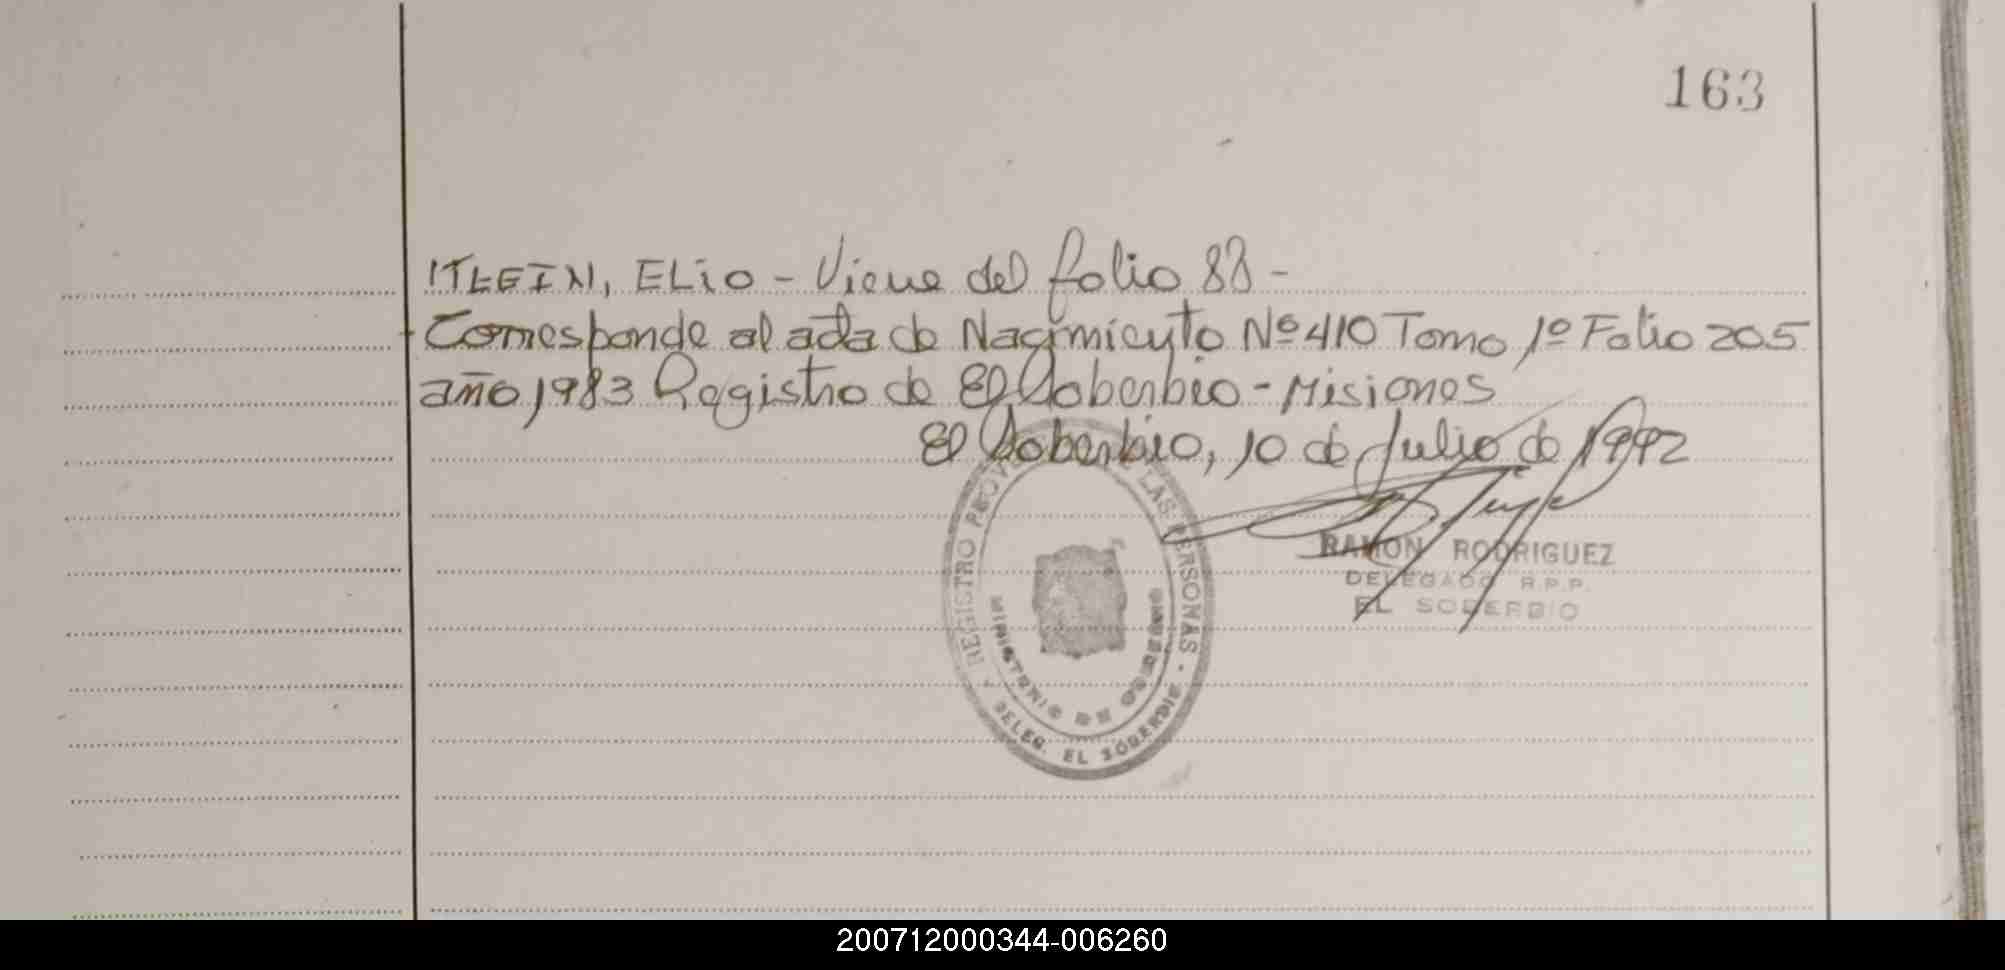 163
ITLEIN, ELIO - Viene del folio 88 -
Corresponde al acta de Nacimiento Nº 410 Tomo 1º Folio 205
año 1983 Registro de El Soberbio - Misiones
El Soberbio, 10 de Julio de 1992
RAMON RODRIGUEZ
DELEGADO R.P.P.
EL SOBERBIO
REGISTRO PROV. DE LAS PERSONAS
MINISTERIO DE GOBIERNO
DELEG. EL SOBERBIO
200712000344-006260